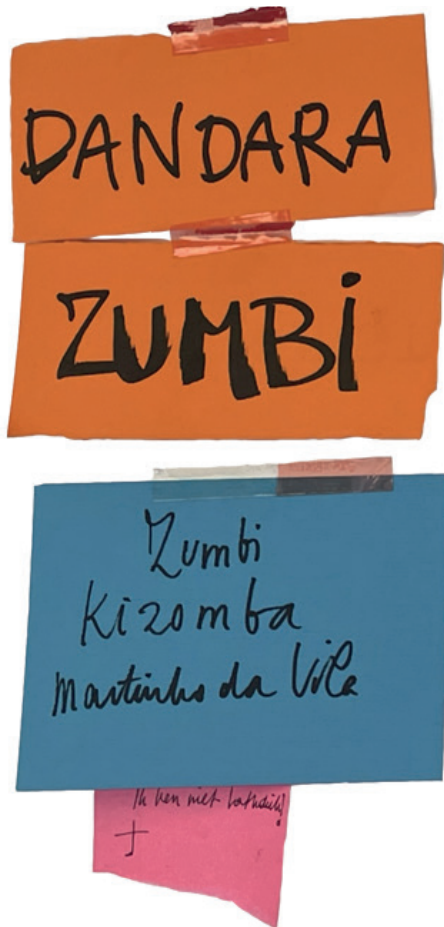 DANDARA
ZUMBi
Zumbi
Kizomba
Martinho da Vila
Ik ben niet